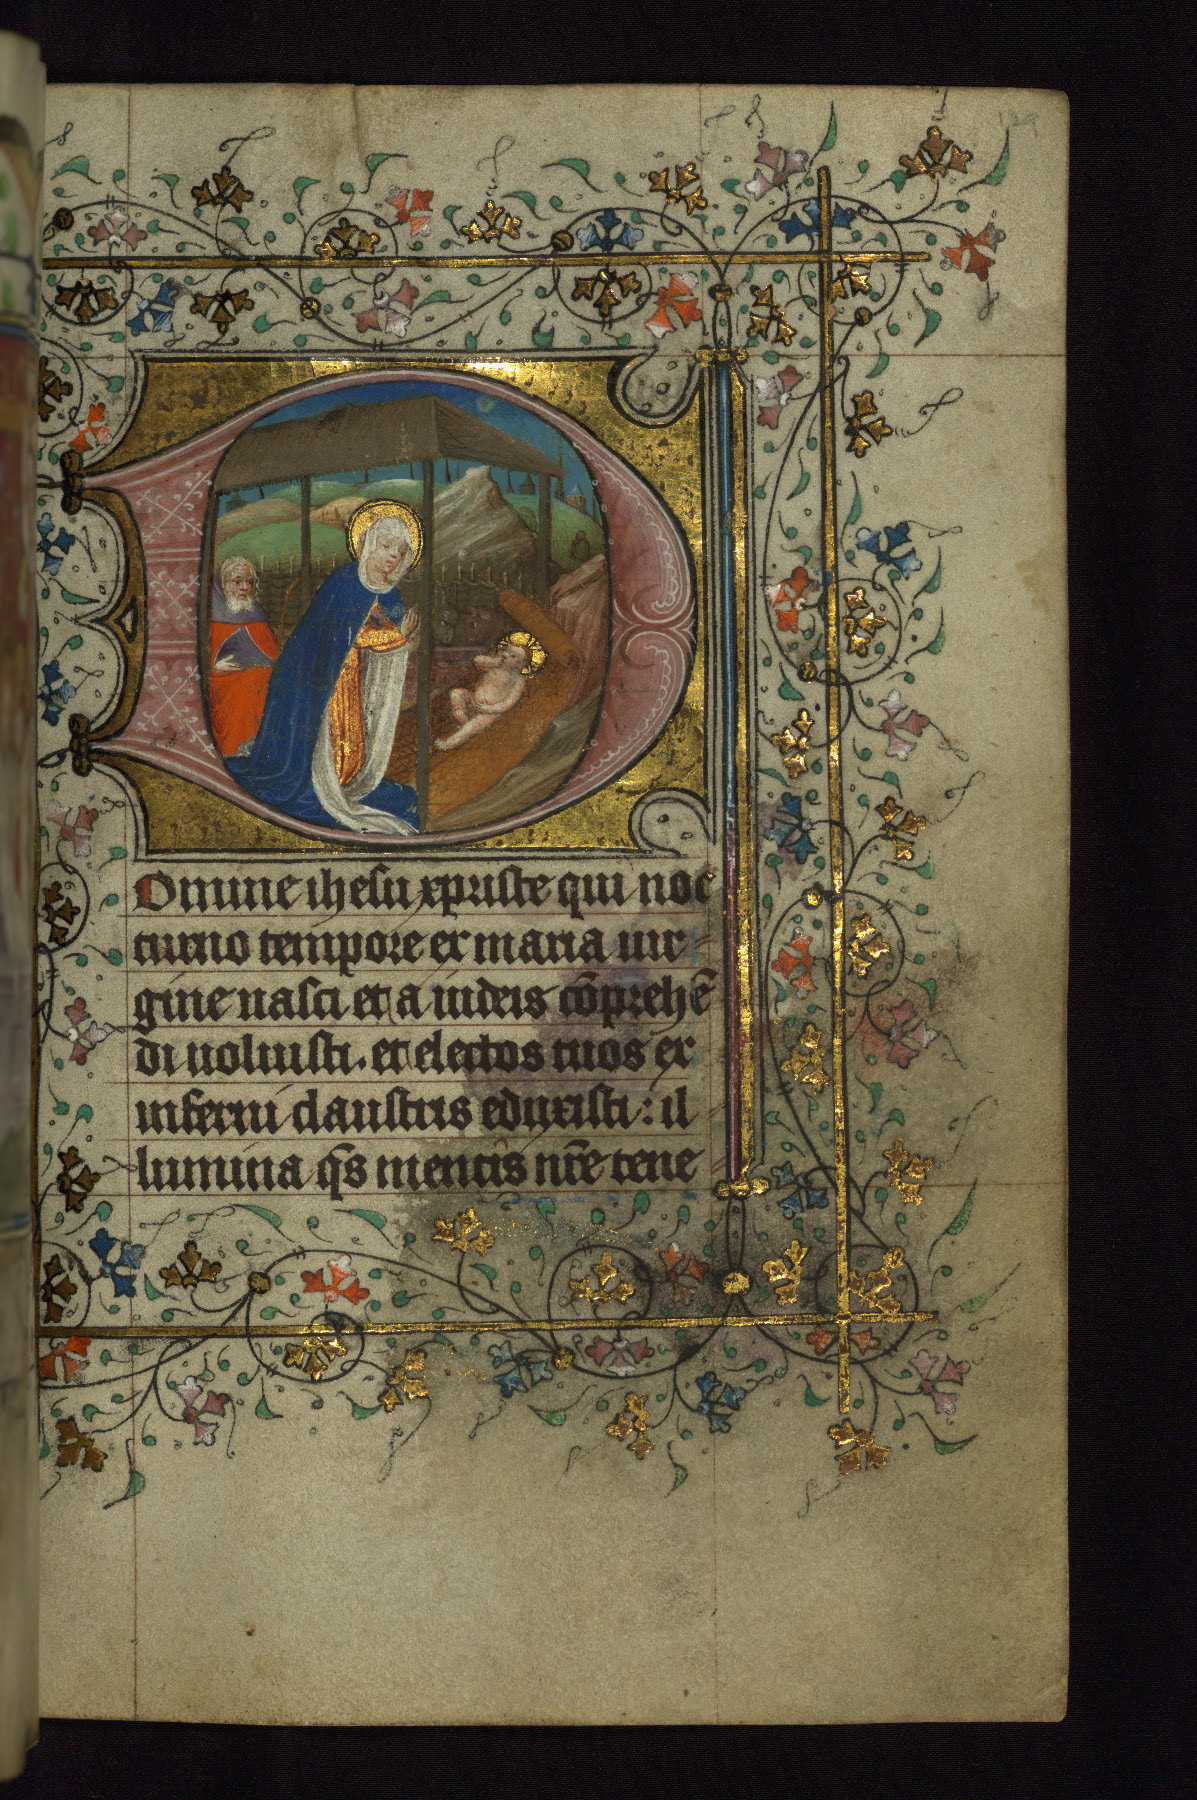 129
Omine ihesu xpriste qui noc
turno tempore ex maria uir
gine nasci et a iudeis cōprehē
di uoluisti. et electos tuos ex
inferni claustris eduxisti: il
lumina q̄s mentis nr̄e tene